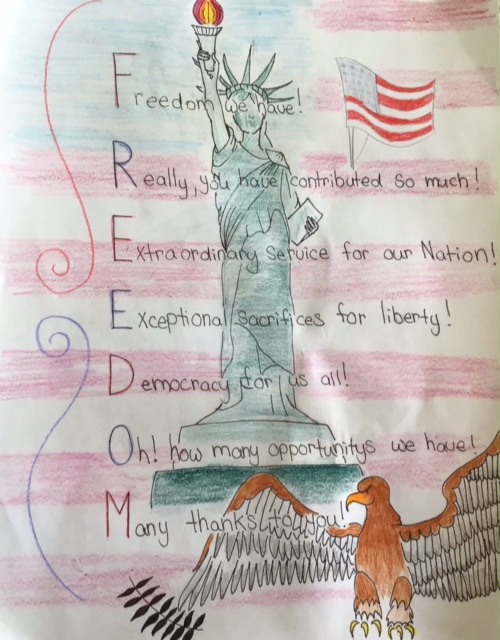 Freedom we have!
Really, you have contributed so much!
Extraordinary Service for our Nation!
Exceptional Sacrifices for liberty!
Democracy for us all!
Oh! how many opportunitys we have!
Many thanks to you!